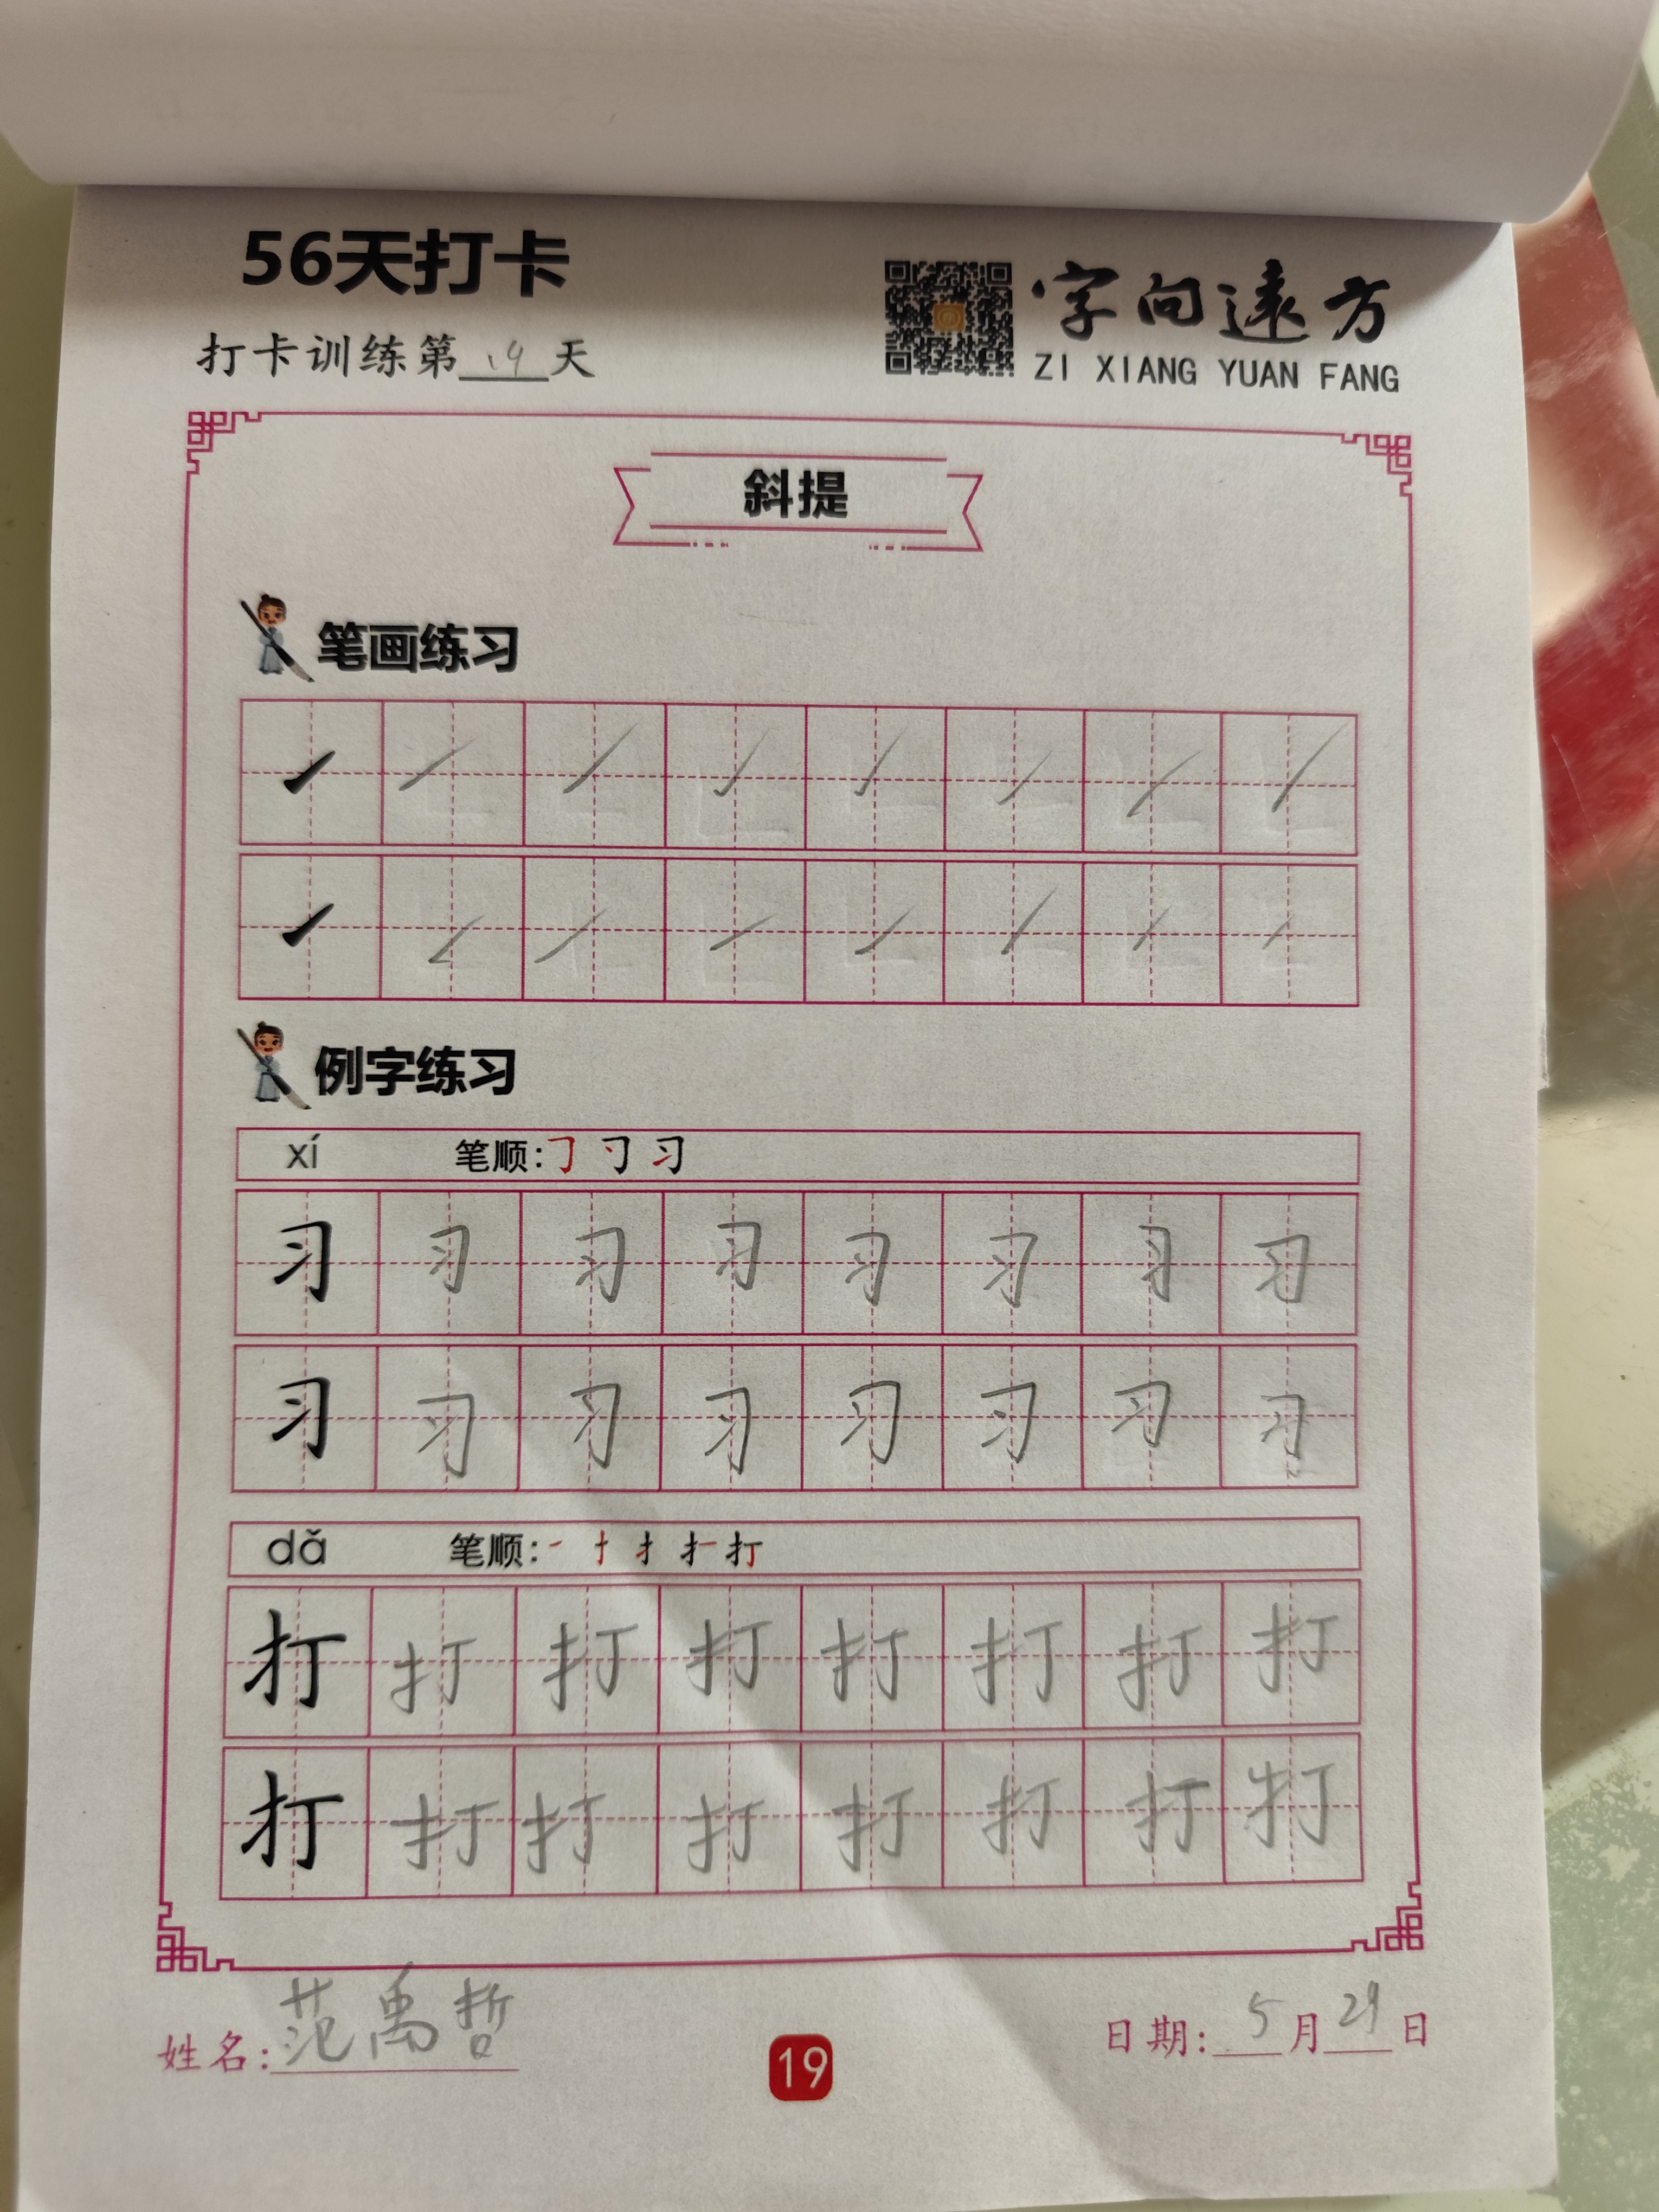 56天打卡
字向遠方
打卡训练第19天
ZI XIANG YUAN FANG
斜提
笔画练习
例字练习
xí 笔顺:
习 习 习 习 习 习 习 习
习 习 习 习 习 习 习 习
dǎ 笔顺: 一 扌 打
打 打 打 打 打 打 打 打
打 打 打 打 打 打 打 打
姓名: 范禹哲
日期: 5月29日
19